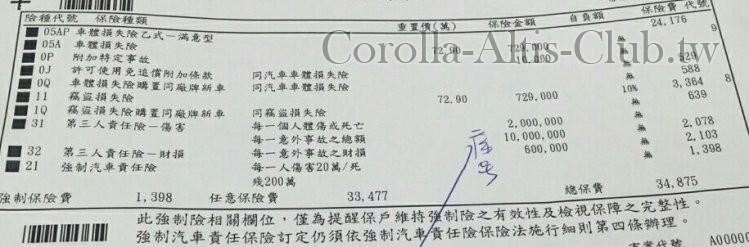 險種代號 保險種類 重置價(萬) 保險金額 自負額 保險費 代號
05AP 車體損失險乙式－滿意型 24,176 9
05A 車體損失險 72.90 729,000 無
0P 附加特定事故 10,000 無 529
0J 許可使用免追償附加條款 同汽車車體損失險 無 588
0Q 車體損失險購置同廠牌新車 同汽車車體損失險 10% 3,364 8
11 竊盜損失險 72.90 729,000 無 639
1Q 竊盜損失險購置同廠牌新車 同竊盜損失險
31 第三人責任險－傷害 每一個人體傷或死亡 2,000,000 無 2,078
每一意外事故之總額 10,000,000 無 2,103
32 第三人責任險－財損 每一意外事故之財損 600,000 無 1,398
21 強制汽車責任險 每一人傷害20萬/死
殘200萬
強制保險費 1,398 任意保險費 33,477 總保費 34,875
此強制險相關欄位，僅為提醒保戶維持強制險之有效性及檢視保障之完整性。
強制汽車責任保險訂定仍須依強制汽車責任保險法施行細則第四條辦理。
A0000
Corolla-Altis-Club.tw